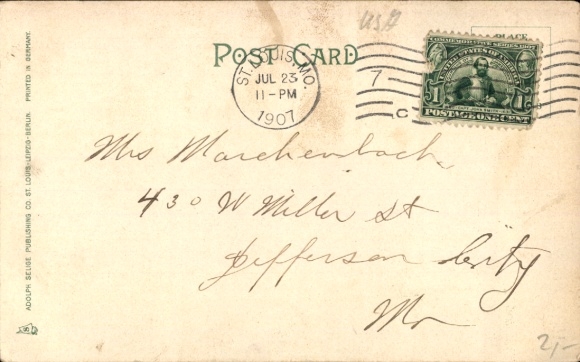 USA
POST CARD
PLACE
COMMEMORATIVE SERIES 1907
UNITED STATES OF AMERICA
1 1
POSTAGE ONE CENT
ST. LOUIS, MO.
JUL 23
11-PM
1907
7
C
Mrs Marchenbach
430 W Miller st
Jefferson City
Mo
2,-
ADOLPH SELIGE PUBLISHING CO. ST. LOUIS-LEIPZIG-BERLIN. PRINTED IN GERMANY.